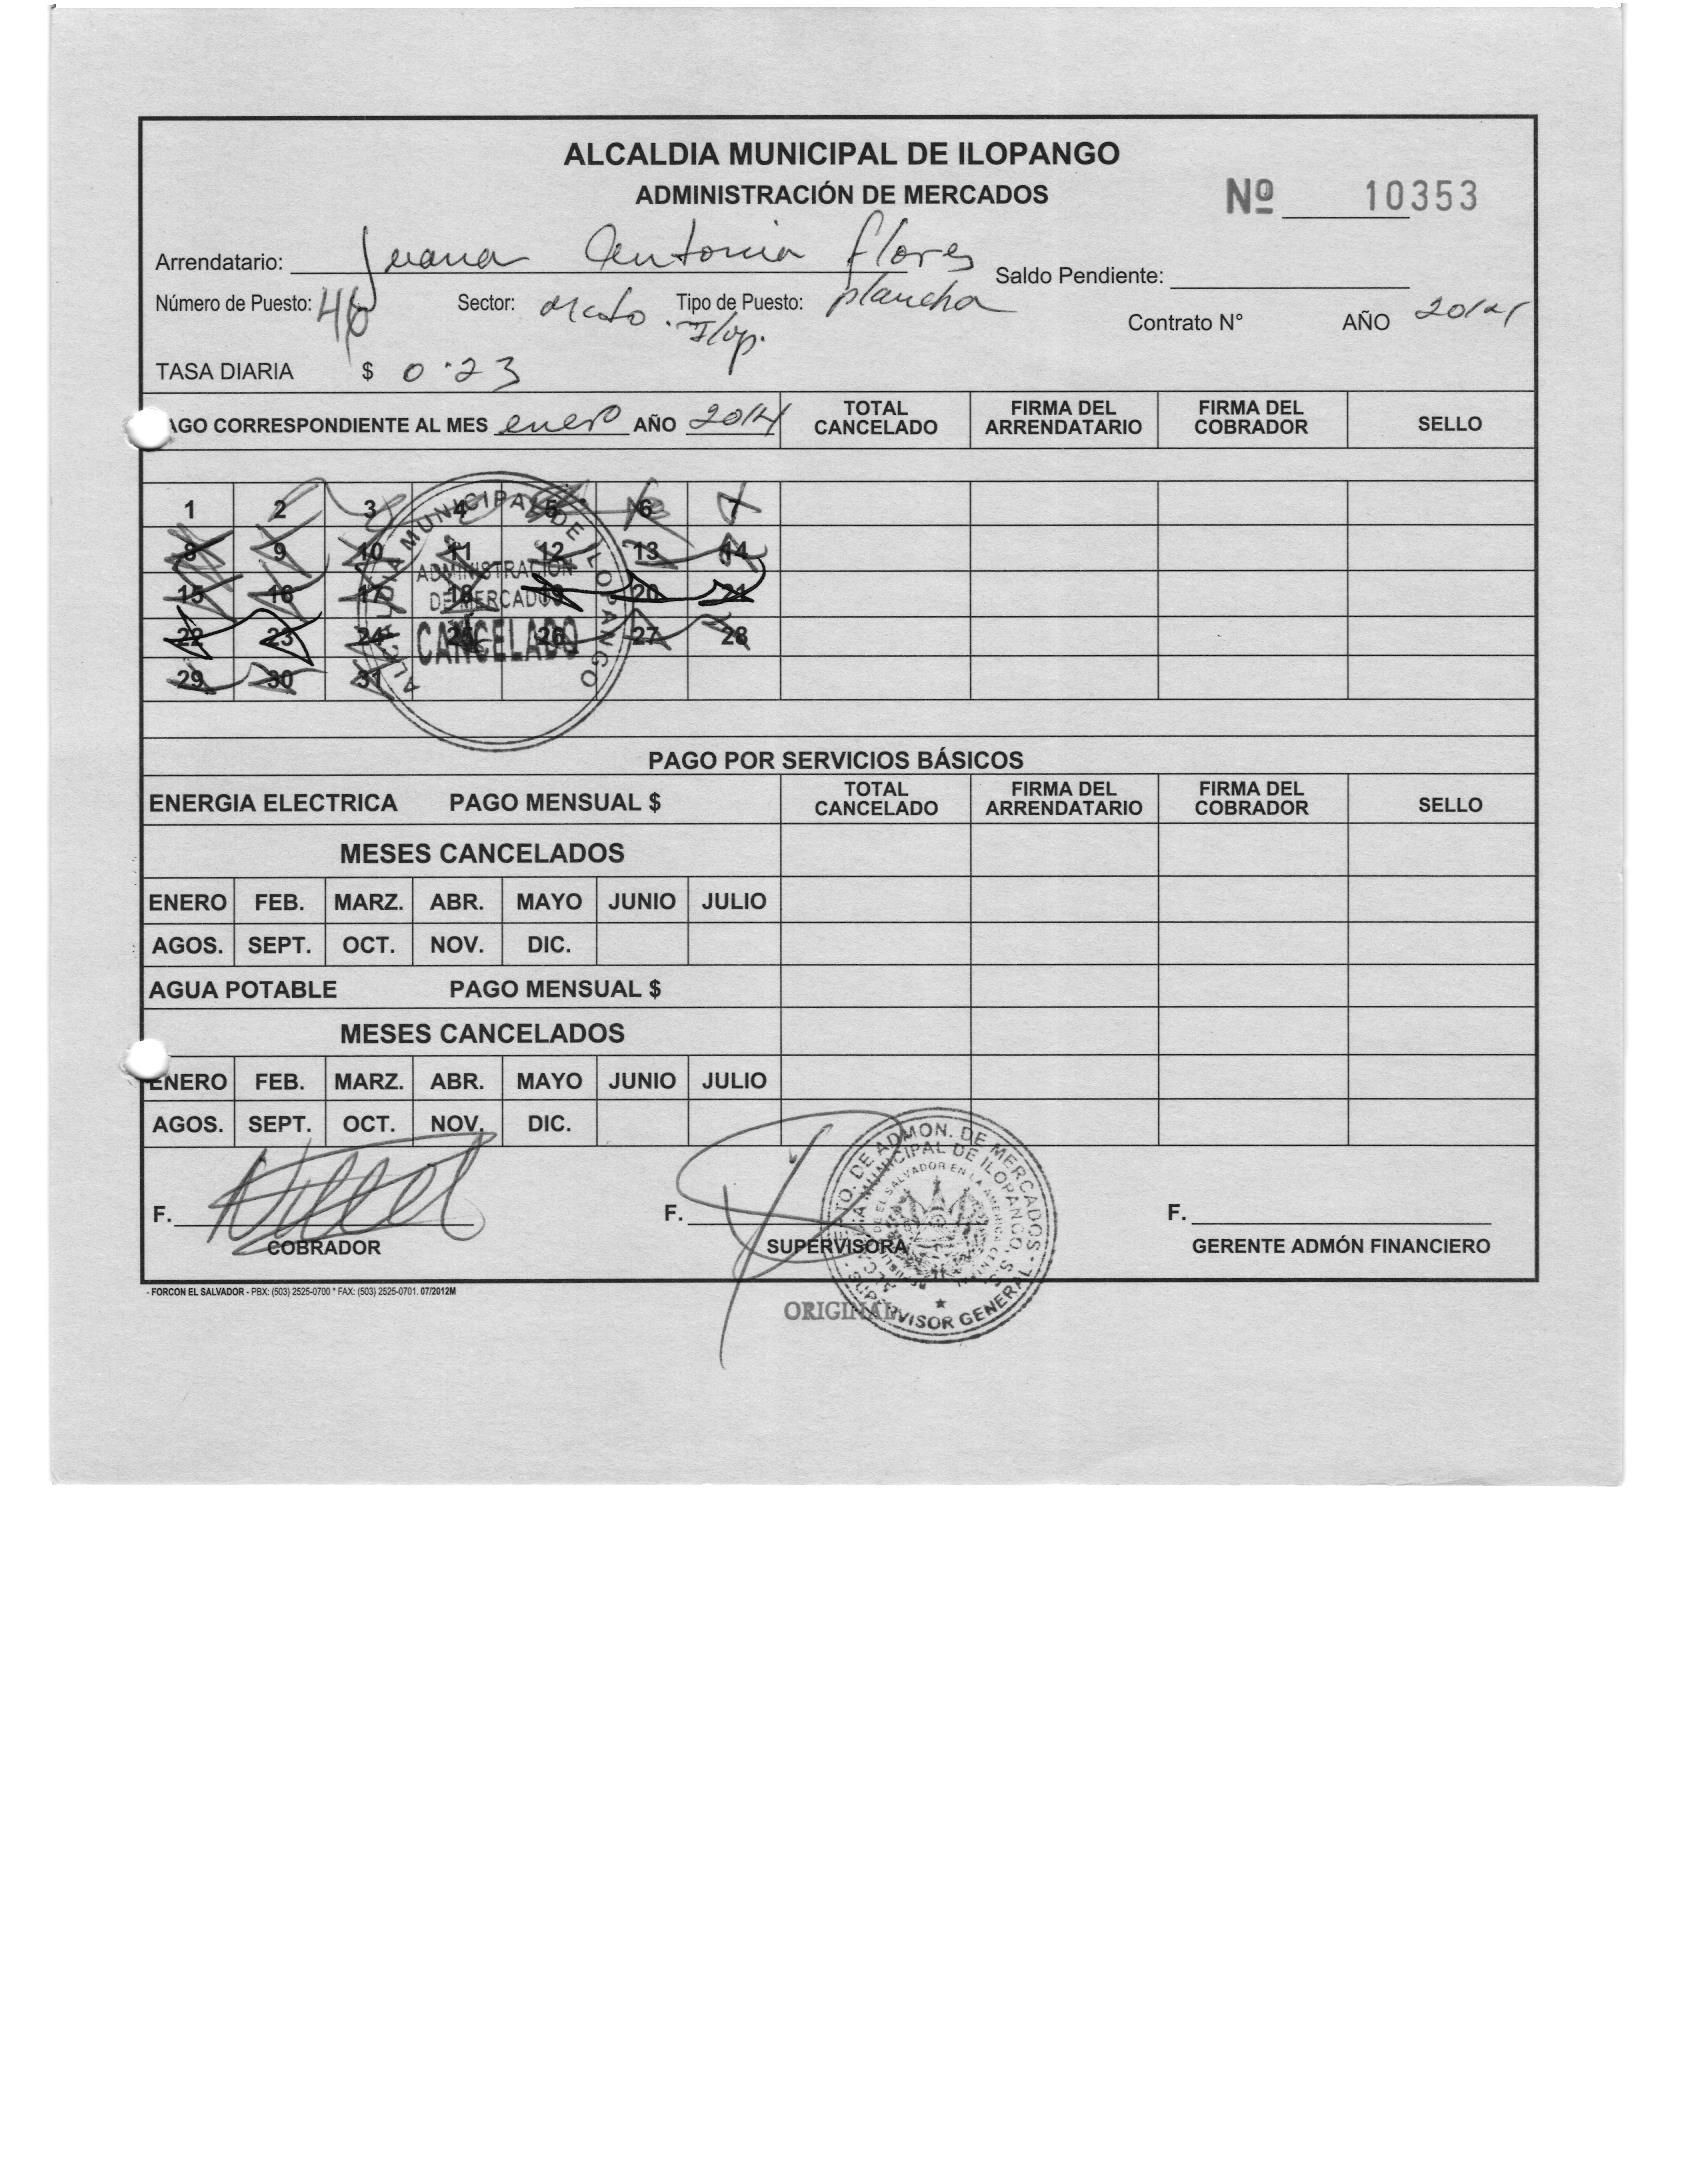 ALCALDIA MUNICIPAL DE ILOPANGO
ADMINISTRACIÓN DE MERCADOS
Nº 10353
Arrendatario: Juana Antonia flores
Saldo Pendiente:
Número de Puesto: 46 Sector: Tipo de Puesto: plancha
Ilop.
Contrato N° AÑO
TASA DIARIA $ 0.23
AGO CORRESPONDIENTE AL MES enero AÑO 2014 TOTAL CANCELADO FIRMA DEL ARRENDATARIO FIRMA DEL COBRADOR SELLO
1 2 3 4 5 6 7
8 9 10 11 12 13 14
15 16 17 18 19 20 21
22 23 24 25 26 27 28
29 30 31
ALCALDIA MUNICIPAL DE ILOPANGO
ADMINISTRACION
DE MERCADOS
CANCELADO
PAGO POR SERVICIOS BÁSICOS
ENERGIA ELECTRICA PAGO MENSUAL $ TOTAL CANCELADO FIRMA DEL ARRENDATARIO FIRMA DEL COBRADOR SELLO
MESES CANCELADOS
ENERO FEB. MARZ. ABR. MAYO JUNIO JULIO
AGOS. SEPT. OCT. NOV. DIC.
AGUA POTABLE PAGO MENSUAL $
MESES CANCELADOS
ENERO FEB. MARZ. ABR. MAYO JUNIO JULIO
AGOS. SEPT. OCT. NOV. DIC.
F. F. F.
COBRADOR SUPERVISORA GERENTE ADMÓN FINANCIERO
DE ADMON. DE MERCADOS
MUNICIPAL DE ILOPANGO
DE EL SALVADOR EN LA AMERICA
SUPERVISOR GENERAL
- FORCON EL SALVADOR - PBX: (503) 2525-0700 * FAX: (503) 2525-0701. 07/2012M
ORIGINAL